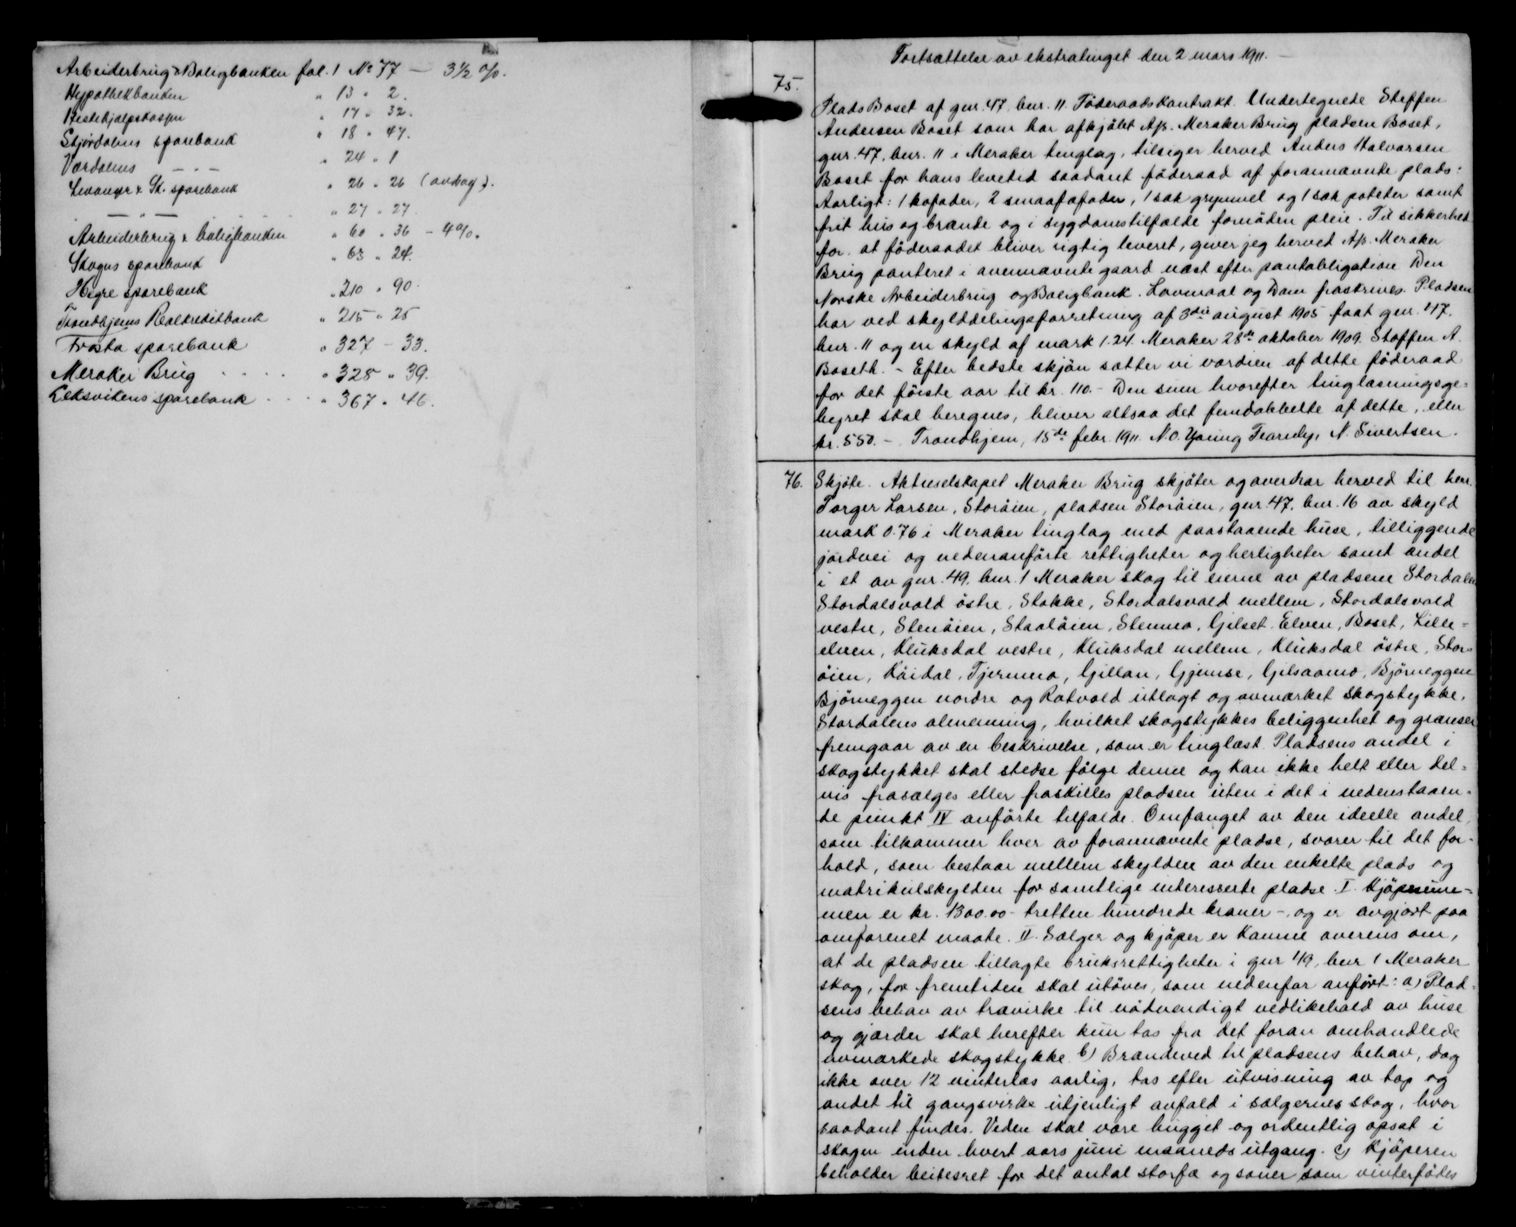 Arbeiderbrug & Boligbanken fol. 1 No 77 — 3½ %.
Hypothekbanken " 13 " 2.
Hestehjælpskassen " 17 " 32.
Stjørdalens sparebank " 18 " 47.
Værdalens — " — " 24 " 1
Levanger & Sk. sparebank " 26 " 26 (avdrag).
— " — " 27 " 27
Arbeiderbrug & boligbanken " 60 " 36 - 4%.
Skogns sparebank " 63 " 24.
Hegre sparebank " 210 " 90.
Trondhjems Realkreditbank " 215 " 25
Frosta sparebank " 327 — 33.
Meraker Brug . . . . " 328 " 39.
Leksvikens sparebank . . . " 367 " 46.
Fortsættelse av ekstratinget den 2 mars 1911. —
75.
Plads Boset af gnr. 47. bnr. 11. Föderaadskontrakt. Undertegnede Steffen
Andersen Boset som har afkjöbt A/s. Meraker Brug pladsen Boset,
gnr. 47, bnr. 11 i Meraker tinglag, tilsiger herved Anders Halvorsen
Boset for hans levetid saadant föderaad af forannævnte plads:
Aarligt: 1 kofoder, 2 smaafæfoder, 1 sæk grynmel og 1 sæk poteter samt
frit hus og brænde og i sygdomstilfælde fornöden pleie. Til sikkerhed
for at föderaadet bliver rigtig leveret, giver jeg herved A/s. Meraker
Brug panteret i ovennævnte gaard næst efter pantobligation Den
Norske Arbeiderbrug og Boligbank. Lovmaal og Dom fraskrives. Pladsen
har ved skylddelingsforretning af 3die august 1905 faat gnr. 47.
bnr. 11 og en skyld af mark 1.24. Meraker 28de oktober 1909. Steffen A.
Boseth. - Efter bedste skjön sætter vi værdien af dette föderaad
for det förste aar til kr. 110.- Den sum hvorefter tinglæsningsge-
byret skal beregnes, bliver altsaa det femdobbelte af dette, eller
kr. 550. - Trondhjem, 15de febr. 1911. N.O. Young Fearnley, N. Sivertsen.
76. Skjöte. Aktieselskapet Meraker Brug skjöter og overdrar herved til herr
Torger Larsen, Storöien, pladsen Storöien, gnr. 47, bnr. 16 av skyld
mark 0.76 i Meraker tinglag med paastaaende huse, tilliggende
jordvei og nedenanförte rettigheter og herligheter samt andel
i et av gnr. 49, bnr. 1 Meraker skog til eierne av pladsene Stordalen
Stordalsvold östre, Stokke, Stordalsvold mellem, Stordalsvold
vestre, Stenöien, Staalöien, Stenmo, Gilset, Elven, Boset, Lille-
elven, Kluksdal vestre, Kluksdal mellem, Kluksdal östre, Stor-
öien, Röidal, Tjernmo, Gillan, Gjemse, Gilsaamo, Björneggen
Björneggen nordre og Ratvold utlagt og avmerket skogstykke,
Stordalens almenning, hvilket skogstykkes beliggenhet og grænser
fremgaar av en beskrivelse, som er tinglæst. Pladsens andel i
skogstykket skal stedse følge denne og kan ikke helt eller del-
vis frasælges eller fraskilles pladsen uten i det i nedenstaaen-
de punkt IV anförte tilfælde. Omfanget av den ideelle andel,
som tilkommer hver av forannævnte pladse, svarer til det for-
hold, som bestaar mellem skylden av den enkelte plads og
matrikulskylden for samtlige interesserte pladse. I. Kjöpesum-
men er kr. 1300.00 - tretten hundrede kroner -, og er avgjort paa
omforenet maate. II. Sælger og kjöper er komne overens om,
at de pladsen tillagte bruksrettigheter i gnr 49, bnr 1 Meraker
skog, for fremtiden skal utöves, som nedenfor anfört: a) Plad-
sens behov av trævirke til nödvendigt vedlikehold av huse
og gjærder skal herefter kun tas fra det foran omhandlede
avmerkede skogstykke. b) Brændeved til pladsens behov, dog
ikke over 12 vinterlas aarlig, tas efter utvisning av top og
andet til gangsvirke utjenligt avfald i sælgernes skog, hvor
saadant findes. Veden skal være hugget og ordentlig opsat i
skogen inden hvert aars juni maaneds utgang. c) Kjöperen
beholder beitesret for det antal storfæ og sauer som vinterfödes